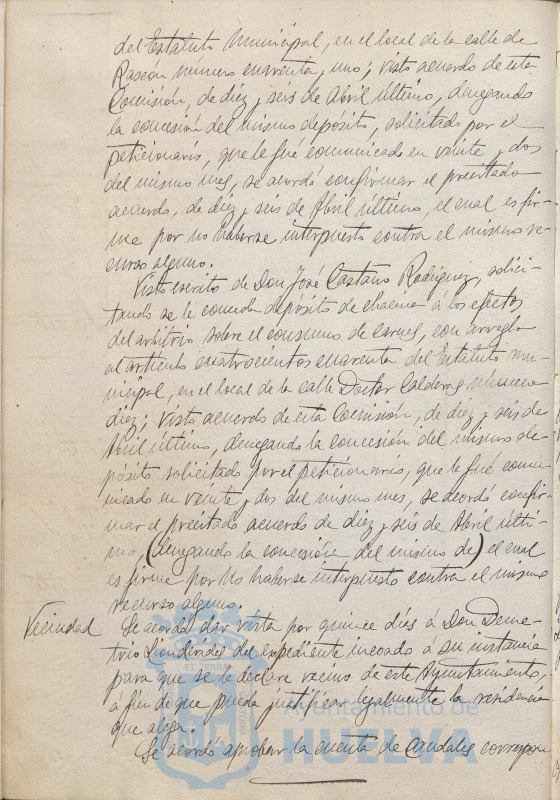 del Estatuto Municipal, en el local de la calle de
Rascón número cuarenta, uno; visto acuerdo de esta
Comisión, de diez y seis de Abril último, denegando
la concesión del mismo depósito, solicitado por el
peticionario, que le fué comunicado en veinte y dos
del mismo mes, se acordó confirmar el precitado
acuerdo, de diez y seis de Abril último, el cual es fir-
me por no haberse interpuesto contra el mismo re-
curso alguno.
Visto escrito de Don José Castaño Rodriguez, solici-
tando se le conceda depósito de chacina á los efectos
del arbitrio sobre el consumo de carnes, con arreglo
al artículo cuatrocientos cuarenta del Estatuto mu-
nicipal, en el local de la calle Doctor Calderas número
diez; visto acuerdo de esta Comisión, de diez y seis de
Abril último, denegando la concesión del mismo de-
pósito solicitado por el peticionario, que le fué comu-
nicado en veinte y dos del mismo mes, se acordó confir-
mar el precitado acuerdo de diez y seis de Abril últi-
mo, (denegando la concesión del mismo de) el cual
es firme por no haberse interpuesto contra el mismo
recurso alguno.
Vecindad Se acordó dar vista por quince dias á Don Deme-
trio del expediente incoado á su instancia
para que se le declare vecino de este Ayuntamiento,
á fin de que pueda justificar legalmente la residencia
que alega.
Se acordó aprobar la cuenta de Caudales correspon
Ayuntamiento de
HUELVA